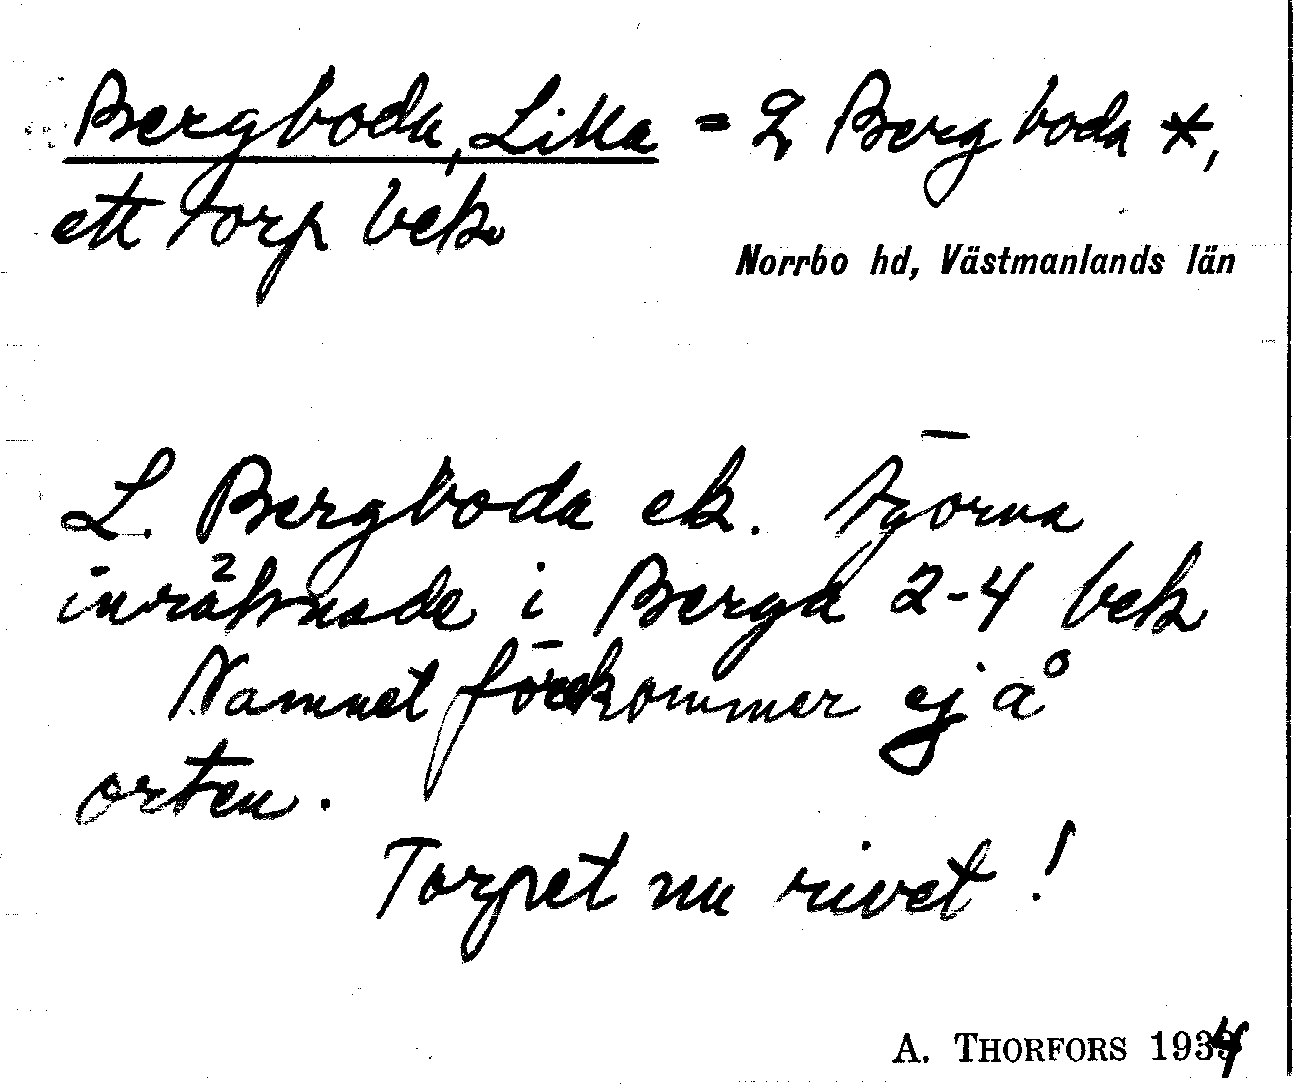 Bergboda, Lilla = 2 Bergboda *,
ett torp bek.
Norrbo hd, Västmanlands län
L. Bergboda ek. tyorna
inräknade i Berga 2-4 bek
Namnet förekommer ej å
orten.
Torpet nu rivet!
A. THORFORS 1934